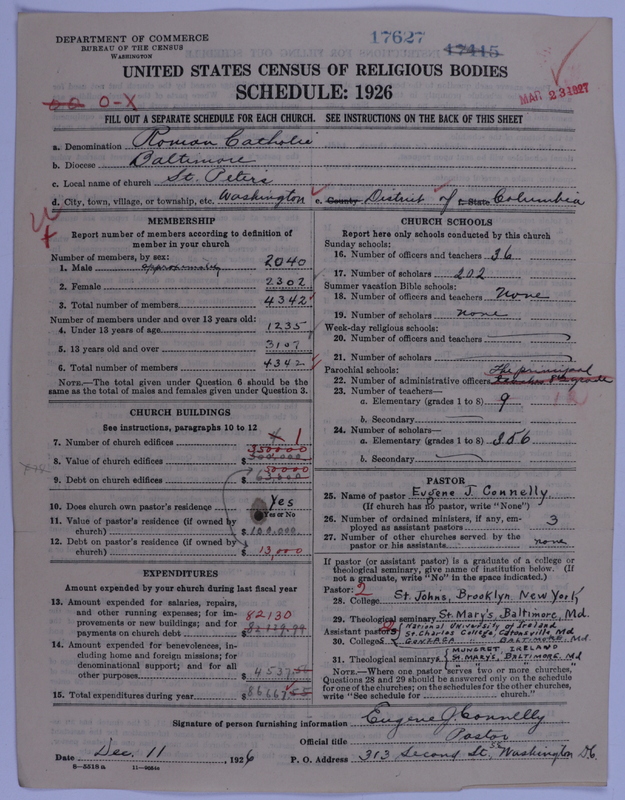 DEPARTMENT OF COMMERCE
BUREAU OF THE CENSUS
WASHINGTON
17627
17415
UNITED STATES CENSUS OF RELIGIOUS BODIES
SCHEDULE: 1926
MAR 23 1927
O-X
FILL OUT A SEPARATE SCHEDULE FOR EACH CHURCH. SEE INSTRUCTIONS ON THE BACK OF THIS SHEET
a. Denomination Roman Catholic
b. Diocese Baltimore
c. Local name of church St. Peters
d. City, town, village, or township, etc. Washington e. County District of f. State Columbia
MEMBERSHIP
Report number of members according to definition of
member in your church
Number of members, by sex:
1. Male approximately 2040
2. Female 2302
3. Total number of members 4342
Number of members under and over 13 years old:
4. Under 13 years of age 1235
5. 13 years old and over 3107
6. Total number of members 4342
NOTE.—The total given under Question 6 should be the
same as the total of males and females given under Question 3.
CHURCH BUILDINGS
See instructions, paragraphs 10 to 12
7. Number of church edifices 1
350000
8. Value of church edifices $
50000
9. Debt on church edifices $ 63000
10. Does church own pastor's residence Yes
Yes or No
11. Value of pastor's residence (if owned by
church) $ 100,000
12. Debt on pastor's residence (if owned by
church) $ 13,000
EXPENDITURES
Amount expended by your church during last fiscal year
13. Amount expended for salaries, repairs,
and other running expenses; for im-
provements or new buildings; and for
payments on church debt 82130
$ 82129.99
14. Amount expended for benevolences, in-
cluding home and foreign missions; for
denominational support; and for all
other purposes $ 4537.55
15. Total expenditures during year $ 86667.55
CHURCH SCHOOLS
Report here only schools conducted by this church
Sunday schools:
16. Number of officers and teachers 36
17. Number of scholars 202
Summer vacation Bible schools:
18. Number of officers and teachers None
19. Number of scholars none
Week-day religious schools:
20. Number of officers and teachers
21. Number of scholars
Parochial schools: The principal
22. Number of administrative officers
23. Number of teachers—
a. Elementary (grades 1 to 8) 9
b. Secondary
24. Number of scholars—
a. Elementary (grades 1 to 8) 356
b. Secondary
PASTOR
25. Name of pastor Eugene J. Connelly
(If church has no pastor, write "None")
26. Number of ordained ministers, if any, em-
ployed as assistant pastors 3
27. Number of other churches served by the
pastor or his assistants none
If pastor (or assistant pastor) is a graduate of a college or
theological seminary, give name of institution below. (If
not a graduate, write "No" in the space indicated.)
Pastor: 2
28. College St. Johns, Brooklyn New York
29. Theological seminary St. Mary's, Baltimore, Md.
Assistant pastors National University of Ireland
St. Charles College, Catonsville Md
30. Colleges Gonzaga Baltimore, Md.
Mungret Ireland
31. Theological seminary St. Mary's, Baltimore, Md
NOTE.—Where one pastor serves two or more churches,
Questions 28 and 29 should be answered only on the schedule
for one of the churches; on the schedules for the other churches,
write "See schedule for church."
Signature of person furnishing information Eugene J. Connelly
Official title Pastor
Date Dec. 11, 1926 P. O. Address 313 Second St. S.E. Washington D.C.
8—5518 a 11—9954a